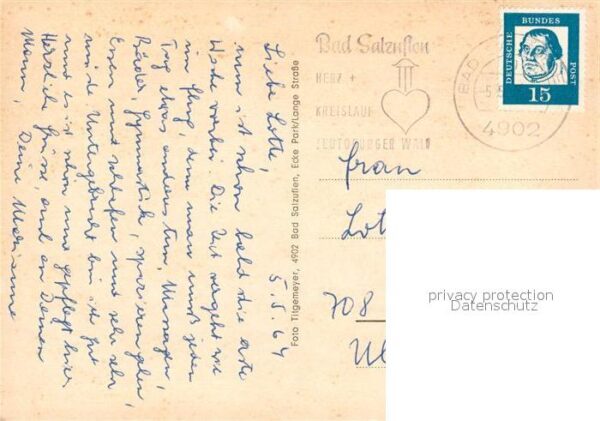 5.5.64
Liebe Lotte,
nun ist schon bald die erste
Woche vorbei. Die Zeit vergeht wie
im Flug, denn man muß jeden
Tag etwas anderes tun, Massagen,
Bäder, Gymnastik, spazieren gehen
Essen und schlafen und sehr sehr
müde. Untergebracht bin ich gut
und es ist schön und gepflegt hier
Herzliche Grüsse, auch an Deinen
Mann, Deine Marianne
Foto Tilgemeyer, 4902 Bad Salzuflen, Ecke Park/Lange Straße
Bad Salzuflen
HERZ +
KREISLAUF
TEUTOBURGER WALD
BAD
-5.5
4902
DEUTSCHE
BUNDES
POST
15
Frau
Lot
708
privacy protection
Datenschutz